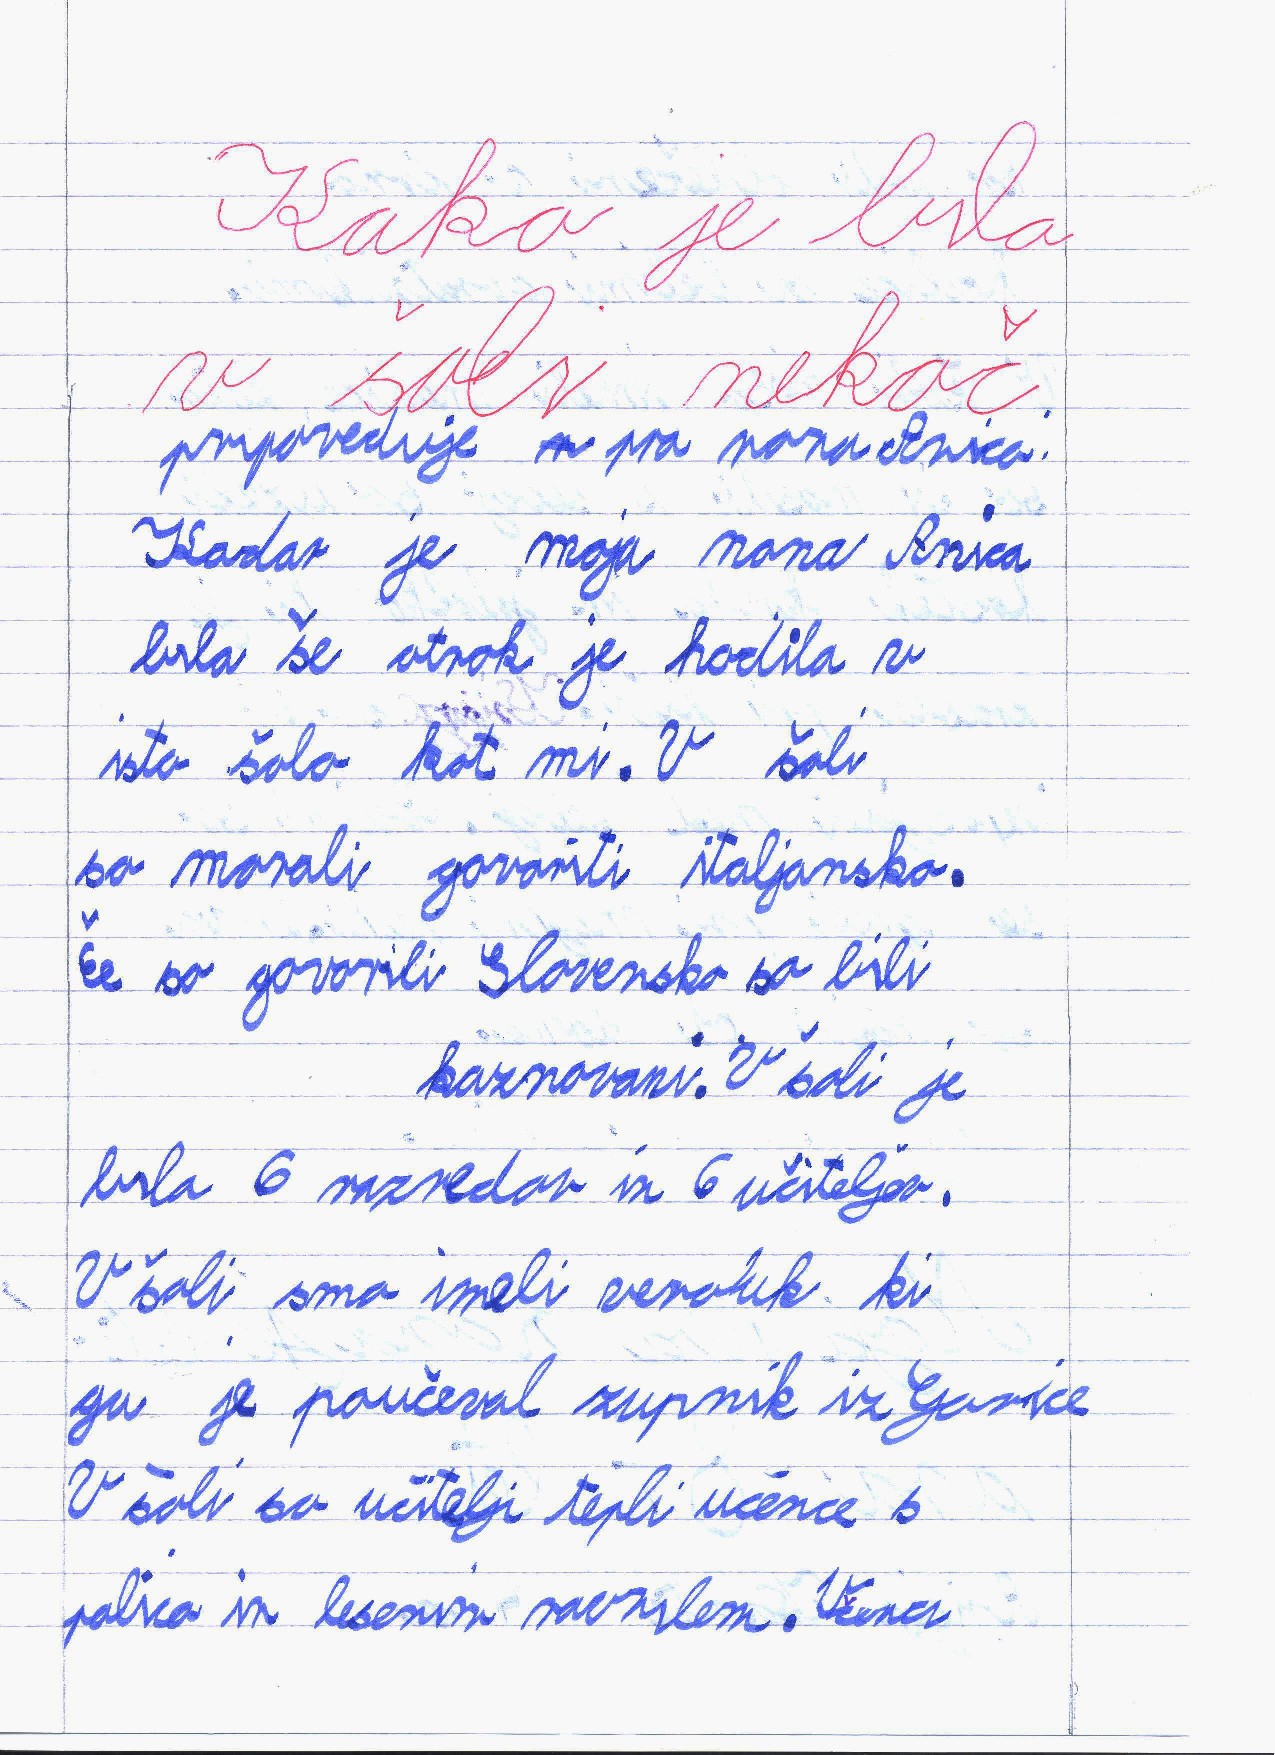 Kako je bila
v šoli nekoč
pripoveduje pra nona Anica.
Kadar je moja nona Anica
bila še otrok je hodila v
isto šolo kot mi. V šoli
so morali govoriti italjansko.
če so govorili Slovensko so bili
kaznovani. V šoli je
bila 6 razredov in 6 učiteljev.
V šoli smo imeli verouk ki
ga je poučeval zupnik iz Gorice
V šoli so učitelji tepli učence s
palico in lesenim ravnilem. Učenci